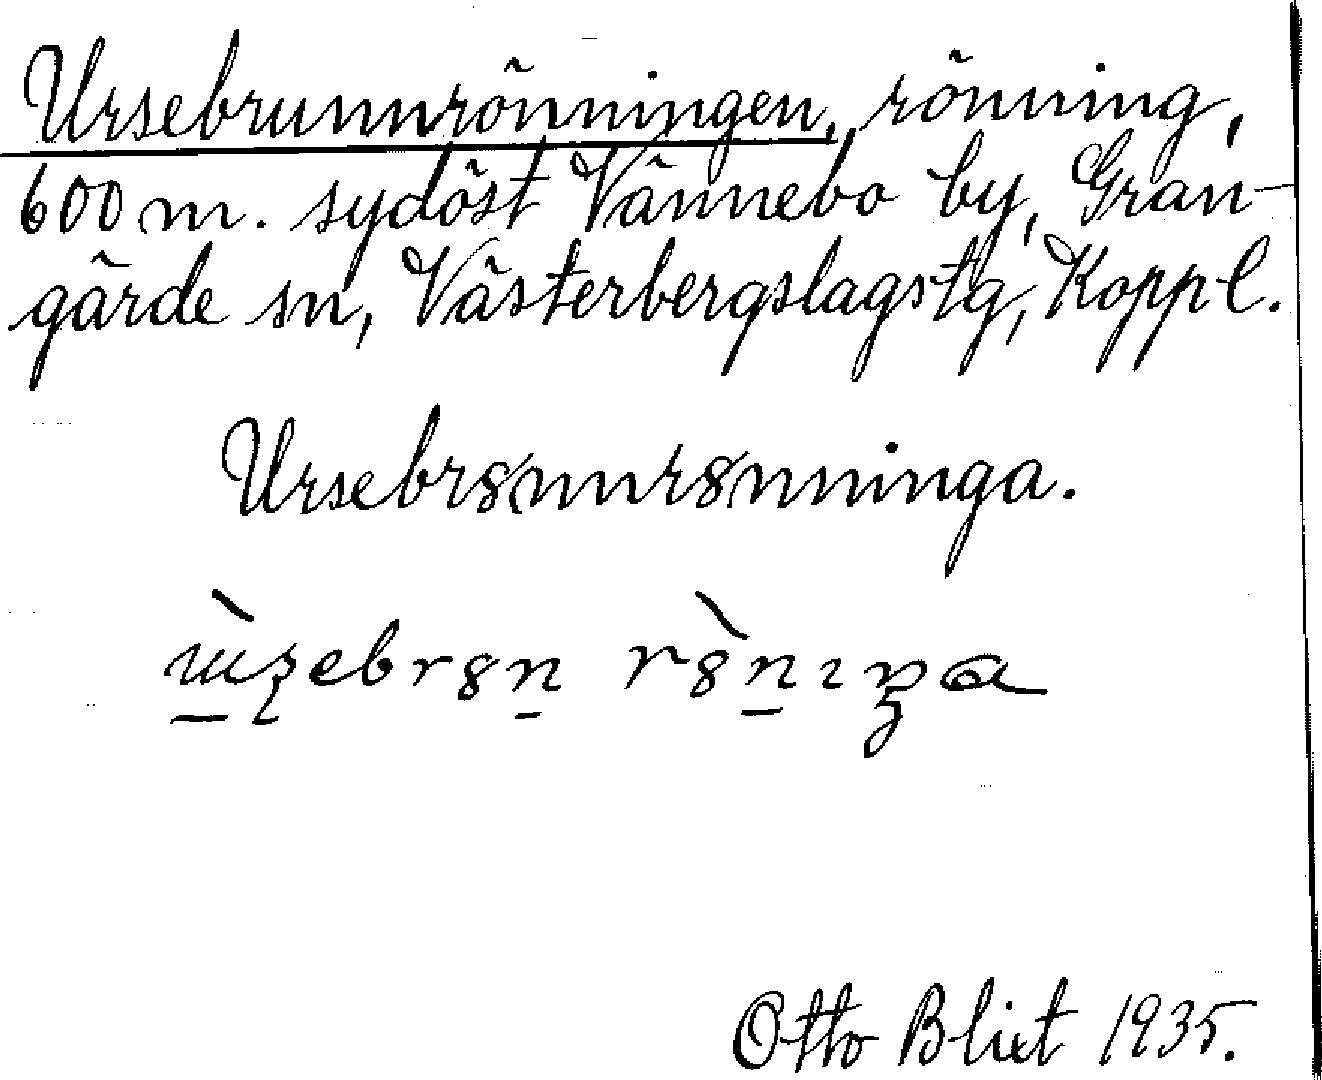 Ursebrunnrönningen, rönning,
600 m. sydöst Vännebo by, Gran-
gärde sn, Västerbergslagstg, Koppl.
Ursebr8nnr8nninga.
Otto Blixt 1935.